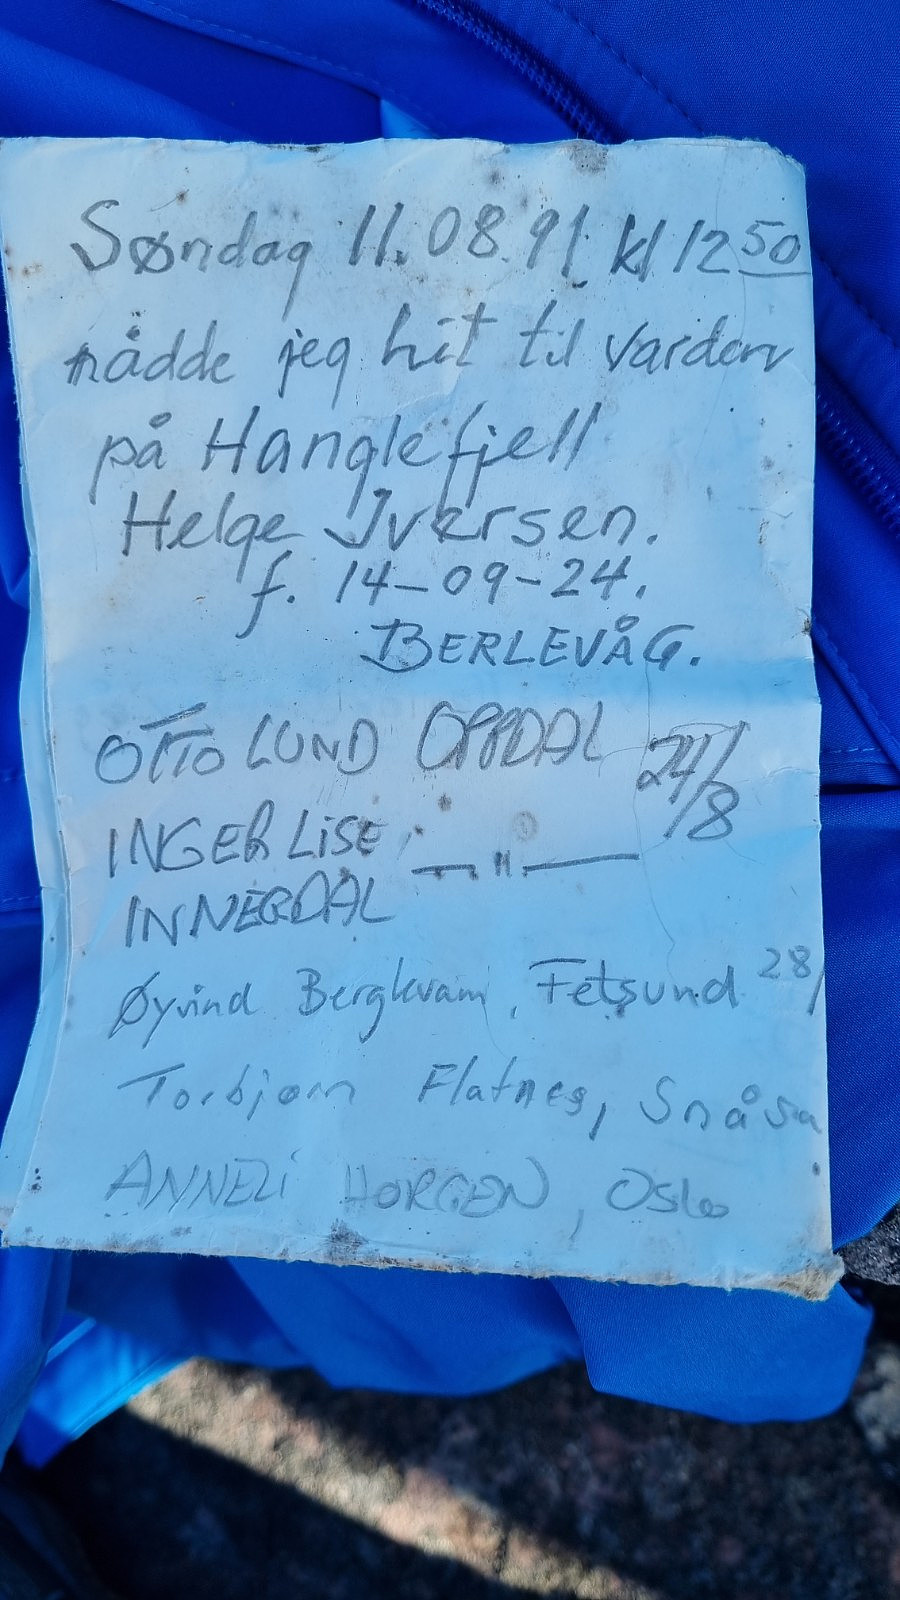 Søndag 11.08.91. kl 12 50
nådde jeg hit til varden
på Hanglefjell
Helge Iversen.
f. 14-09-24.
BERLEVÅG.
OTTO LUND OPPDAL 24/8
INGER LISE —"—
INNERDAL
Øyvind Bergkvam, Fetsund 28/
Torbjørn Flatnes, Snåsa
ANNELI HORGEN, Oslo